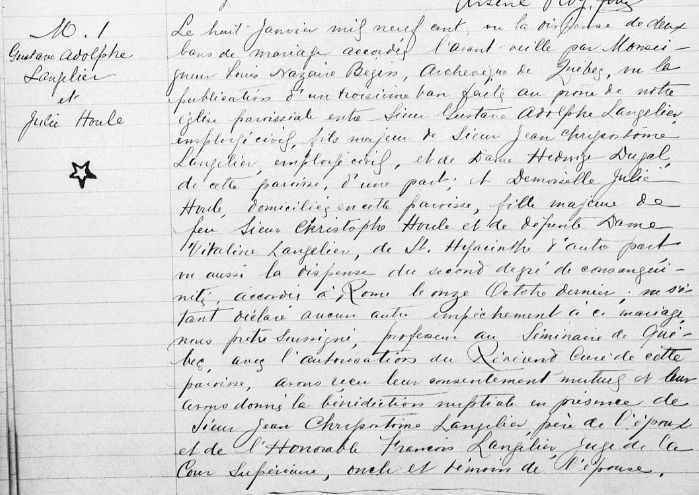 M. 1
Gustave Adolphe
Langelier
et
Julie Houle
Le huit Janvier mil neuf cent, vu la dispense de deux
bans de mariage accordée l'avant veille par Monsei-
gneur Louis Nazaire Bégin, Archevêque de Québec, vu la
publication d'un troisième ban faite au prone de notre
église paroissiale entre Sieur Gustave Adolphe Langelier,
employé civil, fils majeur de Sieur Jean Chrysostome
Langelier, employé civil, et de Dame Hedwige Dugal,
de cette paroisse, d'une part; et Demoiselle Julie
Houle, domiciliée en cette paroisse, fille majeure de
feu Sieur Christophe Houle et de défunte Dame
Vitaline Langelier, de St. Hyacinthe d'autre part
vu aussi la dispense du second degré de consangui-
nité, accordée à Rome le onze Octobre dernier; ne s'é-
tant déclaré aucun autre empêchement à ce mariage,
nous prêtre soussigné, professeur au Séminaire de Qué-
bec, avec l'autorisation du Révérend Curé de cette
paroisse, avons reçu leur consentement mutuel et leur
avons donné la bénédiction nuptiale en présence de
Sieur Jean Chrysostôme Langelier, père de l'époux
et de l'Honorable François Langelier, Juge de la
Cour Supérieure, oncle et témoin de l'épouse.